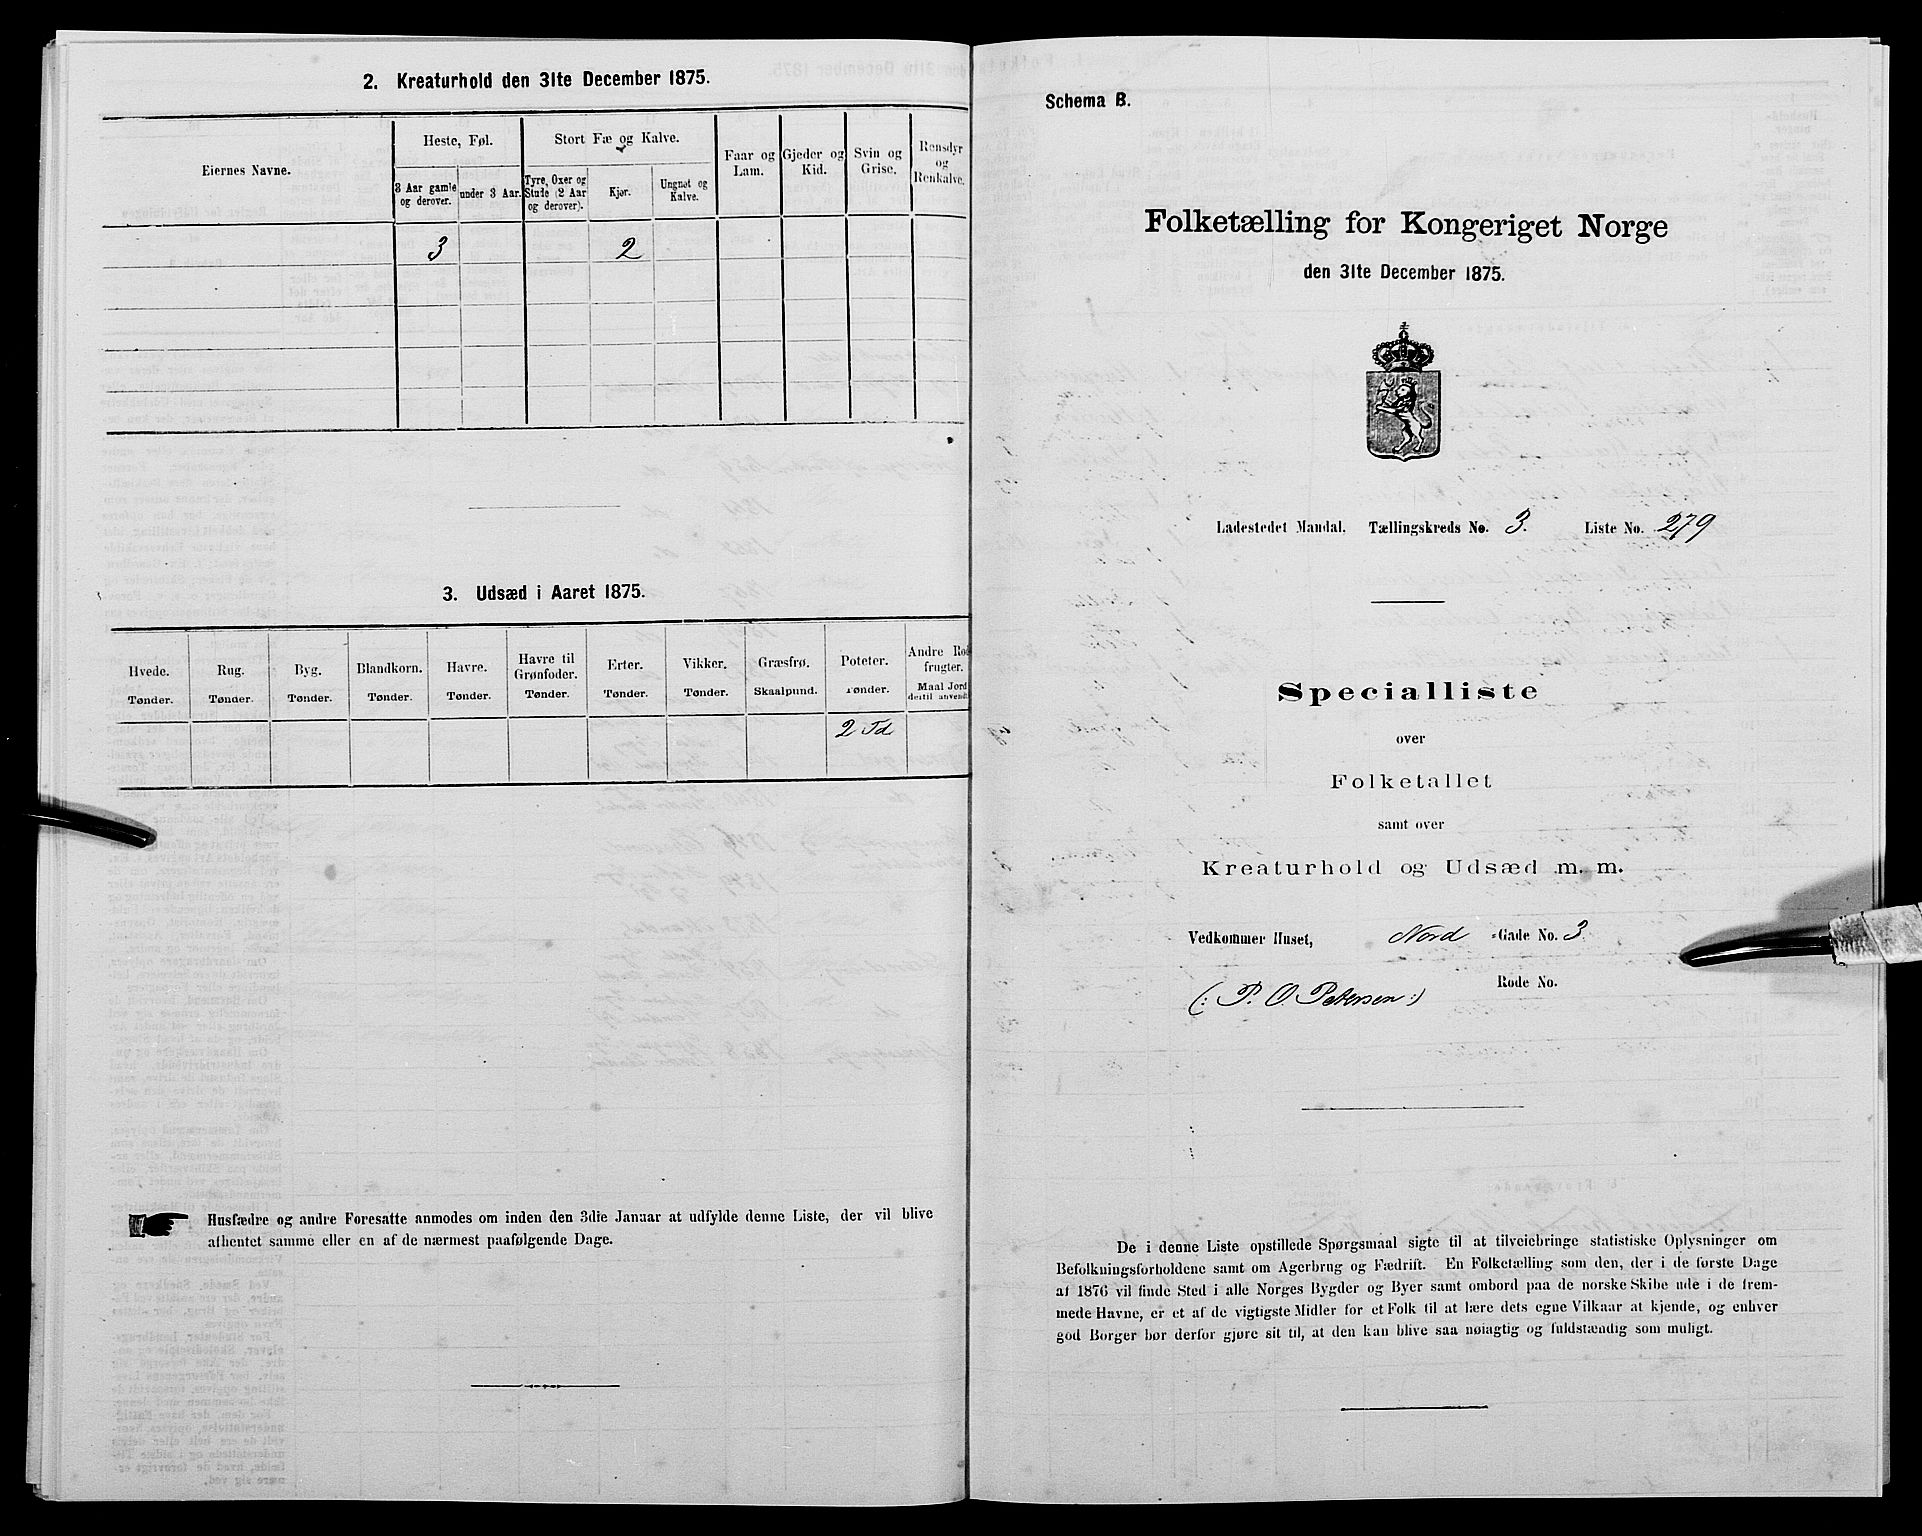 2. Kreaturhold den 31te December 1875.
Eiernes Navne.
Heste, Føl.
Stort Fæ og Kalve.
Faar og Lam.
Gjeder og Kid.
Svin og Grise.
Rensdyr og Renkalve.
3 Aar gamle og derover.
under 3 Aar.
Tyre, Oxer og Stude (2 Aar og derover).
Kjør.
Ungnøt og Kalve.
3 2
3. Udsæd i Aaret 1875.
Hvede. Rug. Byg. Blandkorn. Havre. Havre til Grønfoder. Erter. Vikker. Græsfrø. Poteter. Andre Rodfrugter.
Tønder. Tønder. Tønder. Tønder. Tønder. Tønder. Tønder. Tønder. Skaalpund. Tønder. Maal Jord dertil anvendt
2 Td
Husfædre og andre Foresatte anmodes om inden den 3die Januar at udfylde denne Liste, der vil blive
afhentet samme eller en af de nærmest paafølgende Dage.
Schema B.
Folketælling for Kongeriget Norge
den 31te December 1875.
Ladestedet Mandal. Tællingskreds No. 3. Liste No. 279
Specialliste
over
Folketallet
samt over
Kreaturhold og Udsæd m. m.
Vedkommer Huset, Nord -Gade No. 3
Rode No.
(: P. O. Petersen :)
De i denne Liste opstillede Spørgsmaal sigte til at tilveiebringe statistiske Oplysninger om
Befolkningsforholdene samt om Agerbrug og Fædrift. En Folketælling som den, der i de første Dage
af 1876 vil finde Sted i alle Norges Bygder og Byer samt ombord paa de norske Skibe ude i de frem-
mede Havne, er et af de vigtigste Midler for et Folk til at lære dets egne Vilkaar at kjende, og enhver
god Borger bør derfor gjøre sit til, at den kan blive saa nøiagtig og fuldstændig som muligt.